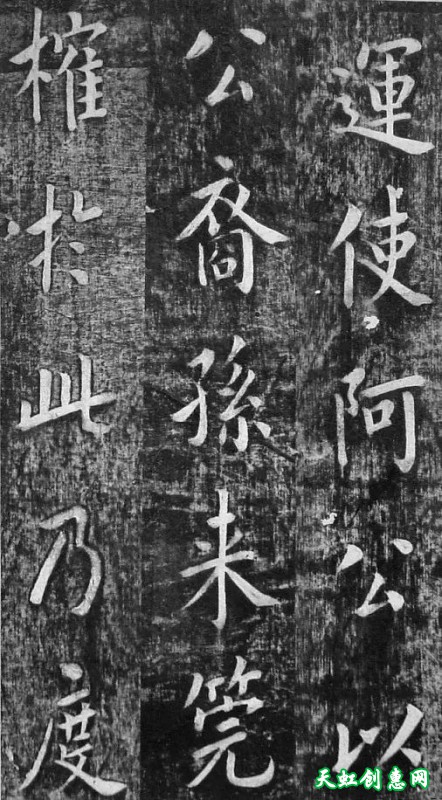 運使阿公以
公裔孫来筦
榷於此乃度
天虹创惠网